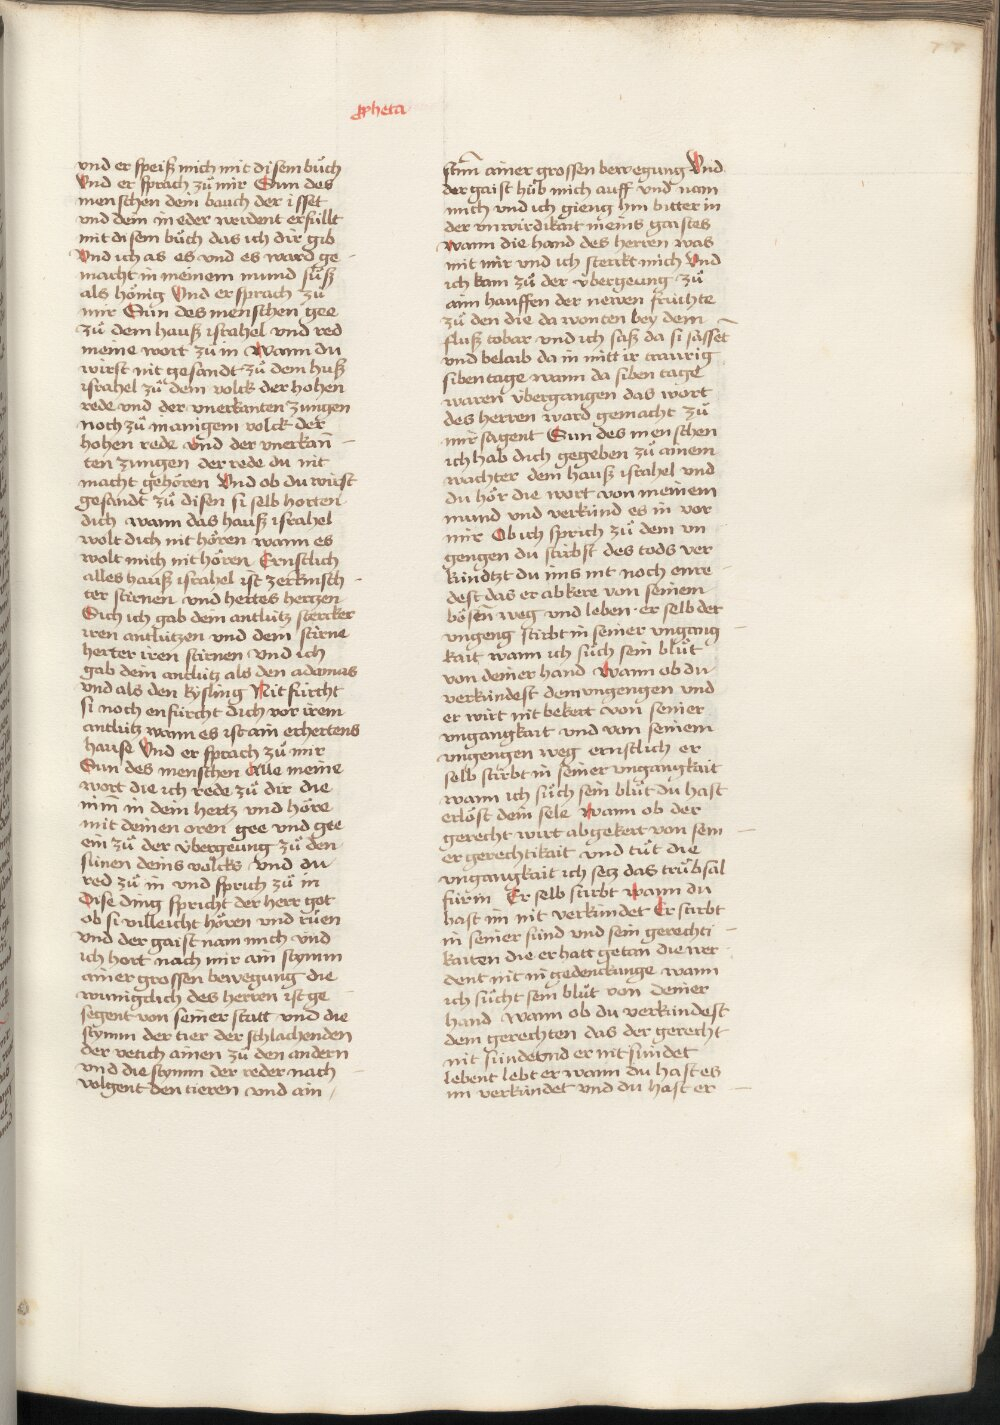 ꝓheta
77
vnd er speiß mich mit disem bůch
Vnd er sprach zů mir Sun des
menschen dein bauch der isset
vnd dein in eder werdent erfüllt
mit disem bůch das ich dir gib
Vnd ich as es vnd es ward ge -
macht in meinem mund süß
als hönig Vnd er sprach zů
mir Sun des menschen gee
zů dem hauß israhel vnd red
meine wort zů in Wann du
wirst nit gesandt zů dem huß
israhel zů dem volck der hohen
rede vnd der vnerkanten zungen
noch zů manigem volck der
hohen rede vnd der vnerkañ -
ten zungen der rede du nit
macht gehören Vnd ob du wirst
gesandt zů disen si selb horten
dich wann das hauß israhel
wolt dich nit hören wann es
wolt mich nit hören Ernstlich
alles hauß israhel ist zerknisch -
ter stirnen vnd hertes hertzen
Sich ich gab dem antlütz stercker
iren antlützen vnd dem stirne
herter iren stirnen Vnd ich
gab dein antlütz als den adamas
vnd als den kysling Nit fürcht
si noch enfürcht dich vor irem
antlütz wann es ist ain erhertens
hause Vnd er sprach zů mir
Sun des menschen Alle meine
wort die ich rede zů dir die
nim̄ in dein hertz vnd höre
mit deinen oren gee vnd gee
ein zů der vbergeung zů den
sünen deins volcks vnd du
red zů in vnd sprich zů in
Dise ding spricht der herr got
ob si villeicht hören vnd rüen
vnd der gaist nam mich vnd
ich hort nach mir ain stymm
ainer grossen bewegung die
wunigclich des herren ist ge -
segent von seiner statt vnd die
stymm der tier der schlachenden
der vetich ainen zů den andern
vnd die stymm der reder nach -
volgent den tieren vnd ain
stim̄ ainer grossen bewegung Vnd
der gaist hůb mich auff vnd nam
mich vnd ich gieng hin bitter in
der vnwirdikait meins gaistes
wann die hand des herren was
mit mir vnd ich sterckt mich Vnd
ich kam zů der vbergeung zů
aim hauffen der newen früchte
zů den die da wonten bey dem
fluß tobar vnd ich saß da si sässeñ
vnd belaib da in mitt ir traurig
siben tage wann da siben tage
waren vbergangen das wort
des herren ward gemacht zů
mir sagent Sun des menschen
ich hab dich gegeben zů ainem
wachter dem hauß israhel vnd
du hör die wort von meinem
mund vnd verkünd es in vor
mir Ob ich sprich zů dem vn
gengen du stirbst des tods ver
kündtzt du ims nit noch enre -
dest das er abkere von seinem
bösen̄ weg vnd leben er selb der
vngeng stirbt in seiner vngang -
kait wann ich sůch sein blůt
von deiner hand Wann ob du
verkündest dem vngengen vnd
er wirt nit bekert von seiner
vngangkait vnd von seinem
vngengen weg ernstlich er
selb stirbt in seiner vngangkait
wann ich sůch sein blůt du hast
erlöst dein sele Wann ob der
gerecht wirt abgekert von sein -
er gerechtikait vnd tůt die
vngangkait ich setz das trůbsal
für in Er selb stirbt wann du
hast im nit verkündet Er stirbt
in seiner sünd vnd sein gerechti -
kaiten die er hatt getan die wer -
dent nit in gedenckunge wann
ich sůcht sein blůt von deiner
hand Wann ob du verkündest
dem gerechten das der gerecht
nit sünde vnd er nit sündet
lebent lebt er wann du hast es
im verkündet vnd du hast er -